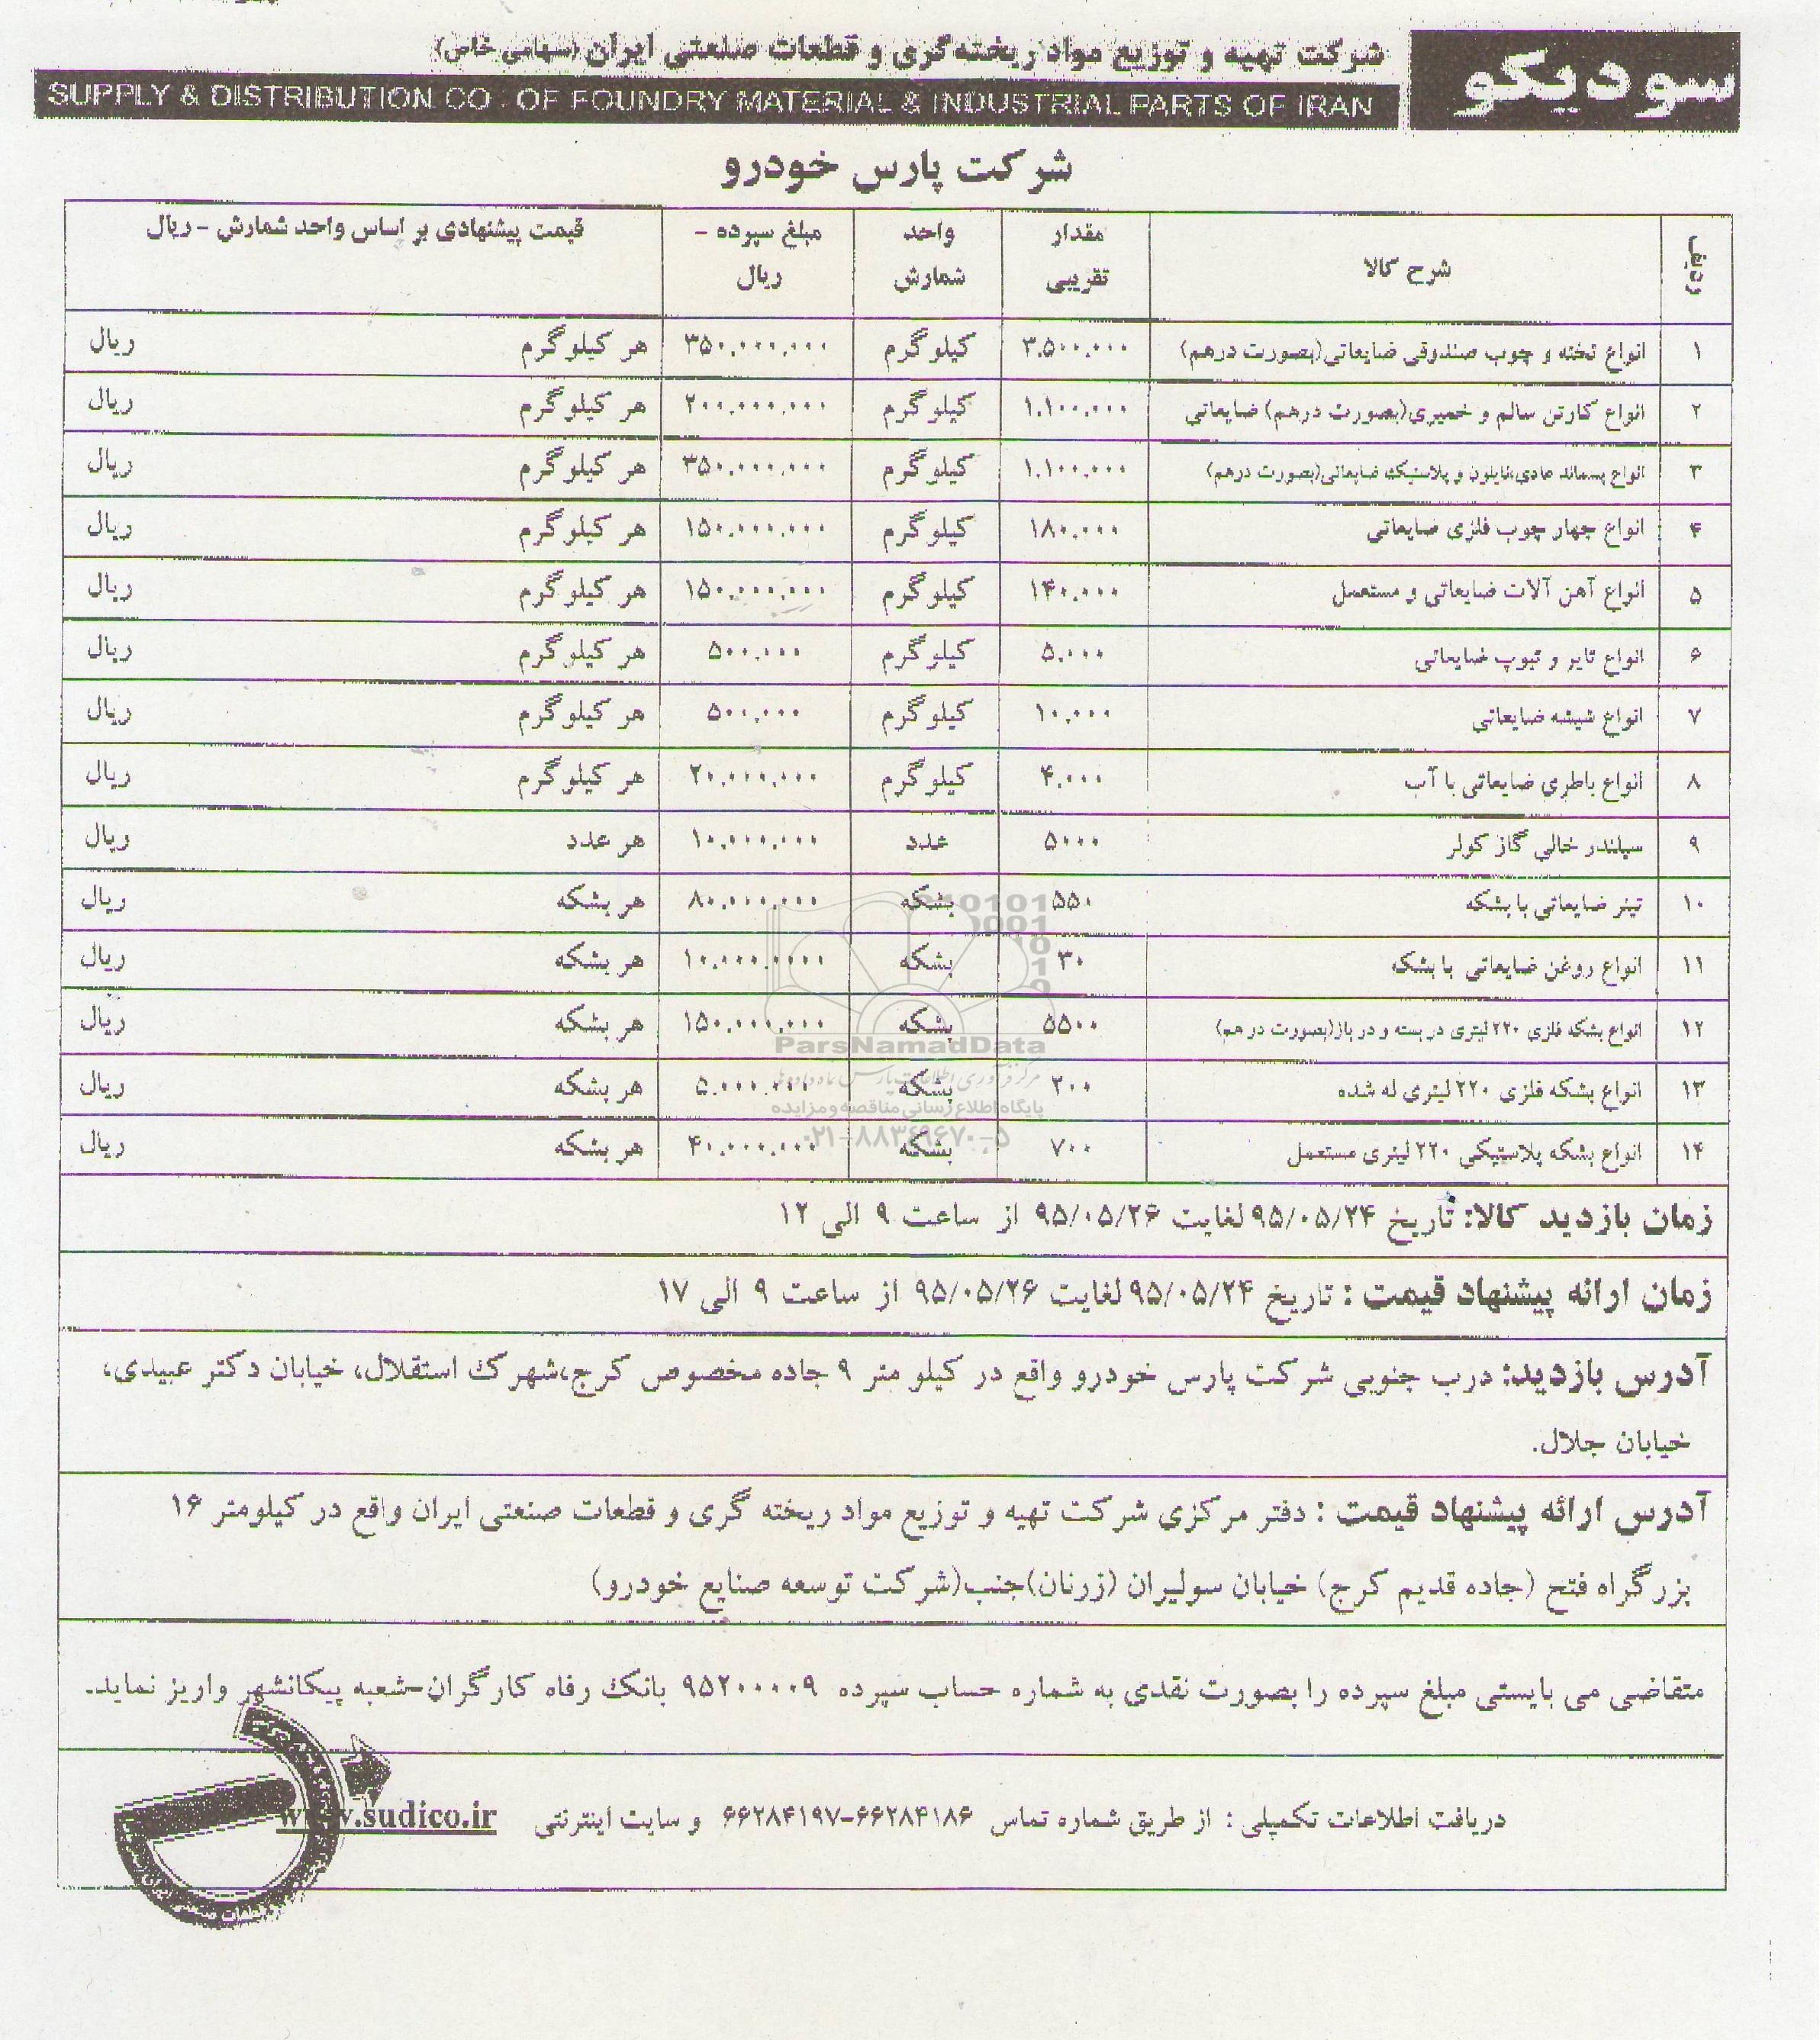 سودیکو
شرکت تهیه و توزیع مواد ریخته‌گری و قطعات صنعتی ایران (سهامی خاص)
SUPPLY & DISTRIBUTION CO . OF FOUNDRY MATERIAL & INDUSTRIAL PARTS OF IRAN
شرکت پارس خودرو
ردیف شرح کالا مقدار تقریبی واحد شمارش مبلغ سپرده - ریال قیمت پیشنهادی بر اساس واحد شمارش - ریال
۱ انواع تخته و چوب صندوقی ضایعاتی(بصورت درهم) ۳.۵۰۰.۰۰۰ کیلوگرم ۳۵۰.۰۰۰.۰۰۰ هر کیلوگرم ریال
۲ انواع کارتن سالم و خمیری(بصورت درهم) ضایعاتی ۱.۱۰۰.۰۰۰ کیلوگرم ۲۰۰.۰۰۰.۰۰۰ هر کیلوگرم ریال
۳ انواع پسماند عادی،نایلون و پلاستیک ضایعاتی(بصورت درهم) ۱.۱۰۰.۰۰۰ کیلوگرم ۳۵۰.۰۰۰.۰۰۰ هر کیلوگرم ریال
۴ انواع چهار چوب فلزی ضایعاتی ۱۸۰.۰۰۰ کیلوگرم ۱۵۰.۰۰۰.۰۰۰ هر کیلوگرم ریال
۵ انواع آهن آلات ضایعاتی و مستعمل ۱۴۰.۰۰۰ کیلوگرم ۱۵۰.۰۰۰.۰۰۰ هر کیلوگرم ریال
۶ انواع تایر و تیوپ ضایعاتی ۵.۰۰۰ کیلوگرم ۵۰۰.۰۰۰ هر کیلوگرم ریال
۷ انواع شیشه ضایعاتی ۱۰.۰۰۰ کیلوگرم ۵۰۰.۰۰۰ هر کیلوگرم ریال
۸ انواع باطری ضایعاتی با آب ۴.۰۰۰ کیلوگرم ۲۰.۰۰۰.۰۰۰ هر کیلوگرم ریال
۹ سیلندر خالی گاز کولر ۵۰۰۰ عدد ۱۰.۰۰۰.۰۰۰ هر عدد ریال
۱۰ تینر ضایعاتی با بشکه ۵۵۰ بشکه ۸۰.۰۰۰.۰۰۰ هر بشکه ریال
۱۱ انواع روغن ضایعاتی با بشک ۳۰ بشکه ۱۰.۰۰۰.۰۰۰۰ هر بشکه ریال
۱۲ انواع بشکه فلزی ۲۲۰ لیتری در بسته و در باز(بصورت در هم) ۵۵۰۰ بشکه ۱۵۰.۰۰۰.۰۰۰ هر بشکه ریال
۱۳ انواع بشکه فلزی ۲۲۰ لیتری له شده ۲۰۰ بشکه ۵.۰۰۰.۰۰۰ هر بشکه ریال
۱۴ انواع بشکه پلاستیکی ۲۲۰ لیتری مستعمل ۷۰۰ بشکه ۴۰.۰۰۰.۰۰۰ هر بشکه ریال
ParsNamadData
پایگاه اطلاع رسانی مناقصه و مزایده
۰۲۱-۸۸۳۴۹۶۷۰-۵
زمان بازدید کالا: تاریخ ۹۵/۰۵/۲۴ لغایت ۹۵/۰۵/۲۶ از ساعت ۹ الی ۱۲
زمان ارائه پیشنهاد قیمت : تاریخ ۹۵/۰۵/۲۴ لغایت ۹۵/۰۵/۲۶ از ساعت ۹ الی ۱۷
آدرس بازدید: درب جنوبی شرکت پارس خودرو واقع در کیلو متر ۹ جاده مخصوص کرج،شهرک استقلال، خیابان دکتر عبیدی،
خیابان جلال.
آدرس ارائه پیشنهاد قیمت : دفتر مرکزی شرکت تهیه و توزیع مواد ریخته گری و قطعات صنعتی ایران واقع در کیلومتر ۱۶
بزرگراه فتح (جاده قدیم کرج) خیابان سولیران (زرنان)جنب(شرکت توسعه صنایع خودرو)
متقاضی می بایستی مبلغ سپرده را بصورت نقدی به شماره حساب سپرده ۹۵۲۰۰۰۰۹ بانک رفاه کارگران-شعبه پیکانشهر واریز نماید.
دریافت اطلاعات تکمیلی : از طریق شماره تماس ۶۶۲۸۴۱۸۶-۶۶۲۸۴۱۹۷ و سایت اینترنتی www.sudico.ir